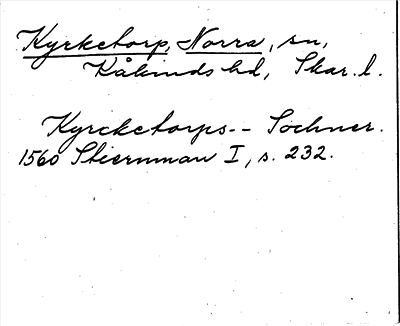 Kyrketorp, Norra, sn,
Kåkinds hd, Skar. l.
Kyrcketorps-- Sochner.
1560 Stiernman I, s. 232.